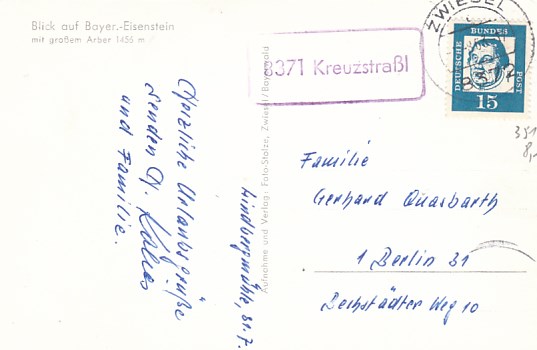 Blick auf Bayer.-Eisenstein
mit großem Arber 1455 m
Herzliche Urlaubsgrüße
senden
und Familie.
Lindbergmühle, 31.7.
Aufnahme und Verlag: Foto-Stolze, Zwiesel/Bayerwald
8371 Kreuzstraßl
ZWIESEL
8372
DEUTSCHE
BUNDES
POST
15
351
8,-
Familie
Gerhard Quasbarth
1 Berlin 31
Weg 10